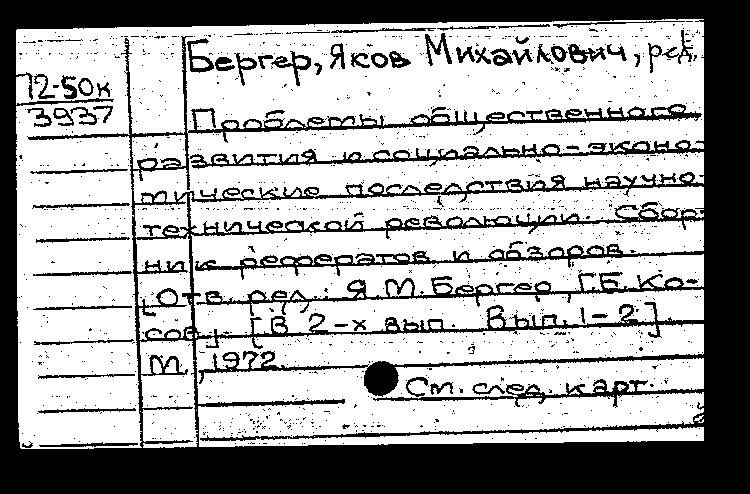 Бергер, Яков Михайлович, ред.
72-50к
3937
Проблемы общественного
развития и социально-эконо-
мические последствия научно-
технической революции. Сбор-
ник рефератов и обзоров.
[Отв. ред.: Я.М. Бергер, Г.Б. Ко-
сов]. [В 2-х вып. Вып. 1-2]
М., 1972.
См. след. карт.